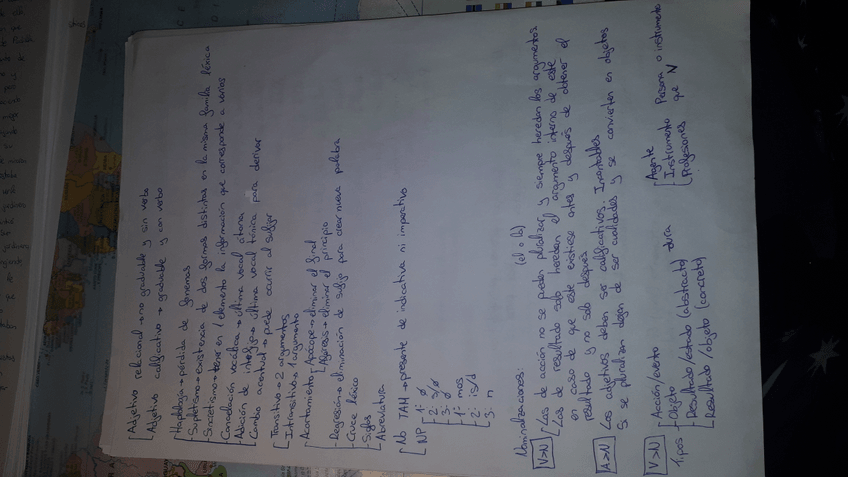 Adjetivo relacional → no graduable y sin verbo
Adjetivo calificativo → graduable y con verbo
Haplología → pérdida de fonemas
Supletismo → existencia de dos formas distintas en la misma familia léxica
Sincretismo → tener en 1 elemento la información que corresponde a varios
Cancelación vocálica → última vocal átona
Adición de interfijo → última vocal tónica para derivar
Cambio acentual → puede ocurrir al sufijar
Transitivo → 2 argumentos
Intransitivo → 1 argumento
Acortamiento Apócope → eliminar el final
Aféresis → eliminar el principio
Regresión → eliminación de sufijo para crear nueva palabra
Cruce léxico
Siglas
Abreviatura
No TAM → presente de indicativo ni imperativo
NP 1: ø
2: s/ø
3: ø
1: mos
2: is/d
3: n
Nominalizaciones: (el o la)
V>N Las de acción no se pueden pluralizar y siempre heredan los argumentos
Las de resultado solo heredan el argumento interno de este
en caso de que este existiese antes y después de obtener el
resultado y no solo después
A>N Los adjetivos deben ser calificativos. Incontables
Si se pluralizan dejan de ser cualidades y se convierten en objetos
V>N Acción/evento
Tipos Objeto
Resultado/estado (abstracto)
Resultado/objeto (concreto)
Agente
Instrumento
Profesiones
Persona o instrumento
que N